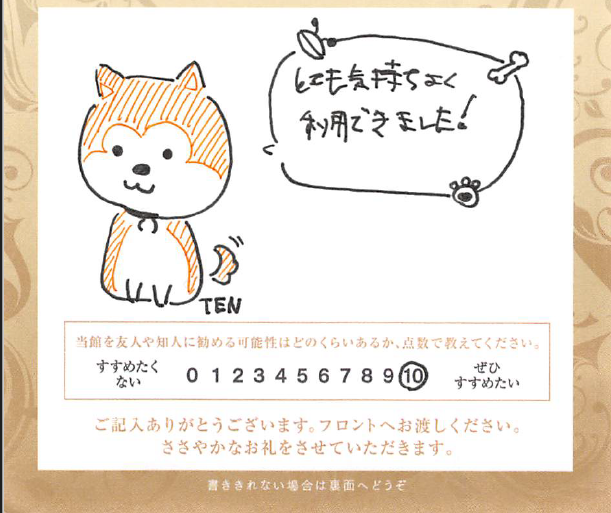 とても気持ちよく
利用できました!
TEN
当館を友人や知人に勧める可能性はどのくらいあるか、点数で教えてください。
すすめたく
ない
0 1 2 3 4 5 6 7 8 9 10
ぜひ
すすめたい
ご記入ありがとうございます。フロントへお渡しください。
ささやかなお礼をさせていただきます。
書ききれない場合は裏面へどうぞ